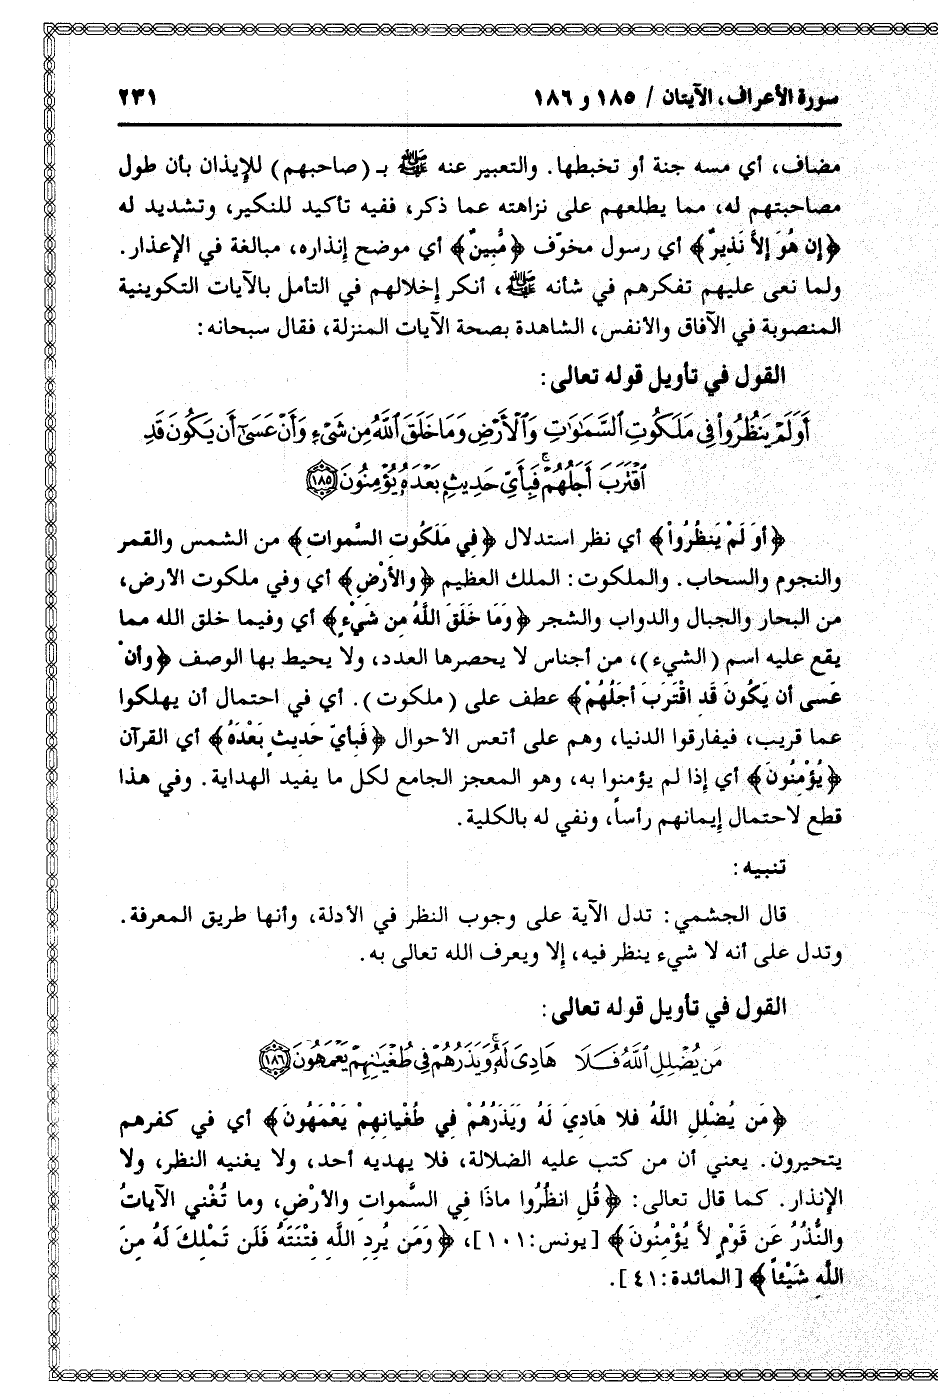 سورة الأعراف، الآيتان / ١٨٥ و ١٨٦ ٢٣١
مضاف، أي مسه جنة أو تخبطها. والتعبير عنه ﷺ بـ (صاحبهم) للإيذان بأن طول
مصاحبتهم له، مما يطلعهم على نزاهته عما ذكر، ففيه تأكيد للنكير، وتشديد له
﴿إن هُوَ إلاَّ نَذِيرٌ﴾ أي رسول مخوّف ﴿مُّبِينٌ﴾ أي موضح إنذاره، مبالغة في الإعذار.
ولما نعى عليهم تفكرهم في شأنه ﷺ، أنكر إخلالهم في التأمل بالآيات التكوينية
المنصوبة في الآفاق والأنفس، الشاهدة بصحة الآيات المنزلة، فقال سبحانه:
القول في تأويل قوله تعالى:
أَوَلَمْ يَنظُرُوا۟ فِى مَلَكُوتِ ٱلسَّمَٰوَٰتِ وَٱلْأَرْضِ وَمَا خَلَقَ ٱللَّهُ مِن شَىْءٍ وَأَنْ عَسَىٰٓ أَن يَكُونَ قَدِ
ٱقْتَرَبَ أَجَلُهُمْ ۖ فَبِأَىِّ حَدِيثٍۭ بَعْدَهُۥ يُؤْمِنُونَ ١٨٥
﴿أوَ لَمْ يَنظُرُواْ﴾ أي نظر استدلال ﴿فِي مَلَكُوتِ السَّمواتِ﴾ من الشمس والقمر
والنجوم والسحاب. والملكوت: الملك العظيم ﴿والأَرْضِ﴾ أي وفي ملكوت الأرض،
من البحار والجبال والدواب والشجر ﴿وَمَا خَلَقَ اللَّهُ مِن شَيْءٍ﴾ أي وفيما خلق الله مما
يقع عليه اسم (الشيء)، من أجناس لا يحصرها العدد، ولا يحيط بها الوصف ﴿وأنْ
عَسى أن يَكُونَ قَدِ اقْتَرَبَ أجَلُهُمْ﴾ عطف على (ملكوت). أي في احتمال أن يهلكوا
عما قريب، فيفارقوا الدنيا، وهم على أتعس الأحوال ﴿فَبأيّ حَديثٍ بَعْدَهُ﴾ أي القرآن
﴿يُؤْمِنُونَ﴾ أي إذا لم يؤمنوا به، وهو المعجز الجامع لكل ما يفيد الهداية. وفي هذا
قطع لاحتمال إيمانهم رأساً، ونفي له بالكلية.
تنبيه:
قال الجشمي: تدل الآية على وجوب النظر في الأدلة، وأنها طريق المعرفة.
وتدل على أنه لا شيء ينظر فيه، إلا ويعرف الله تعالى به.
القول في تأويل قوله تعالى:
مَن يُضْلِلِ ٱللَّهُ فَلَا هَادِىَ لَهُۥ ۚ وَيَذَرُهُمْ فِى طُغْيَٰنِهِمْ يَعْمَهُونَ ١٨٦
﴿مَن يُضْلِلِ اللَهُ فلا هَاديَ لَهُ وَيَذَرُهُمْ فِي طُغْيانِهِمْ يَعْمَهُونَ﴾ أي في كفرهم
يتحيرون. يعني أن من كتب عليه الضلالة، فلا يهديه أحد، ولا يغنيه النظر، ولا
الإنذار. كما قال تعالى: ﴿قُلِ انظُرُوا ماذَا فِي السَّموات والأرْضِ، وما تُغْني الآياتُ
والنُّذُرُ عَن قَوْمٍ لاَّ يُؤْمِنُونَ﴾ [يونس: ١٠١]، ﴿وَمَن يُرِدِ اللَّهِ فِتْنَتَهُ فَلَن تَمْلِكَ لَهُ مِنَ
اللَّهِ شَيْئاً﴾ [المائدة: ٤١].